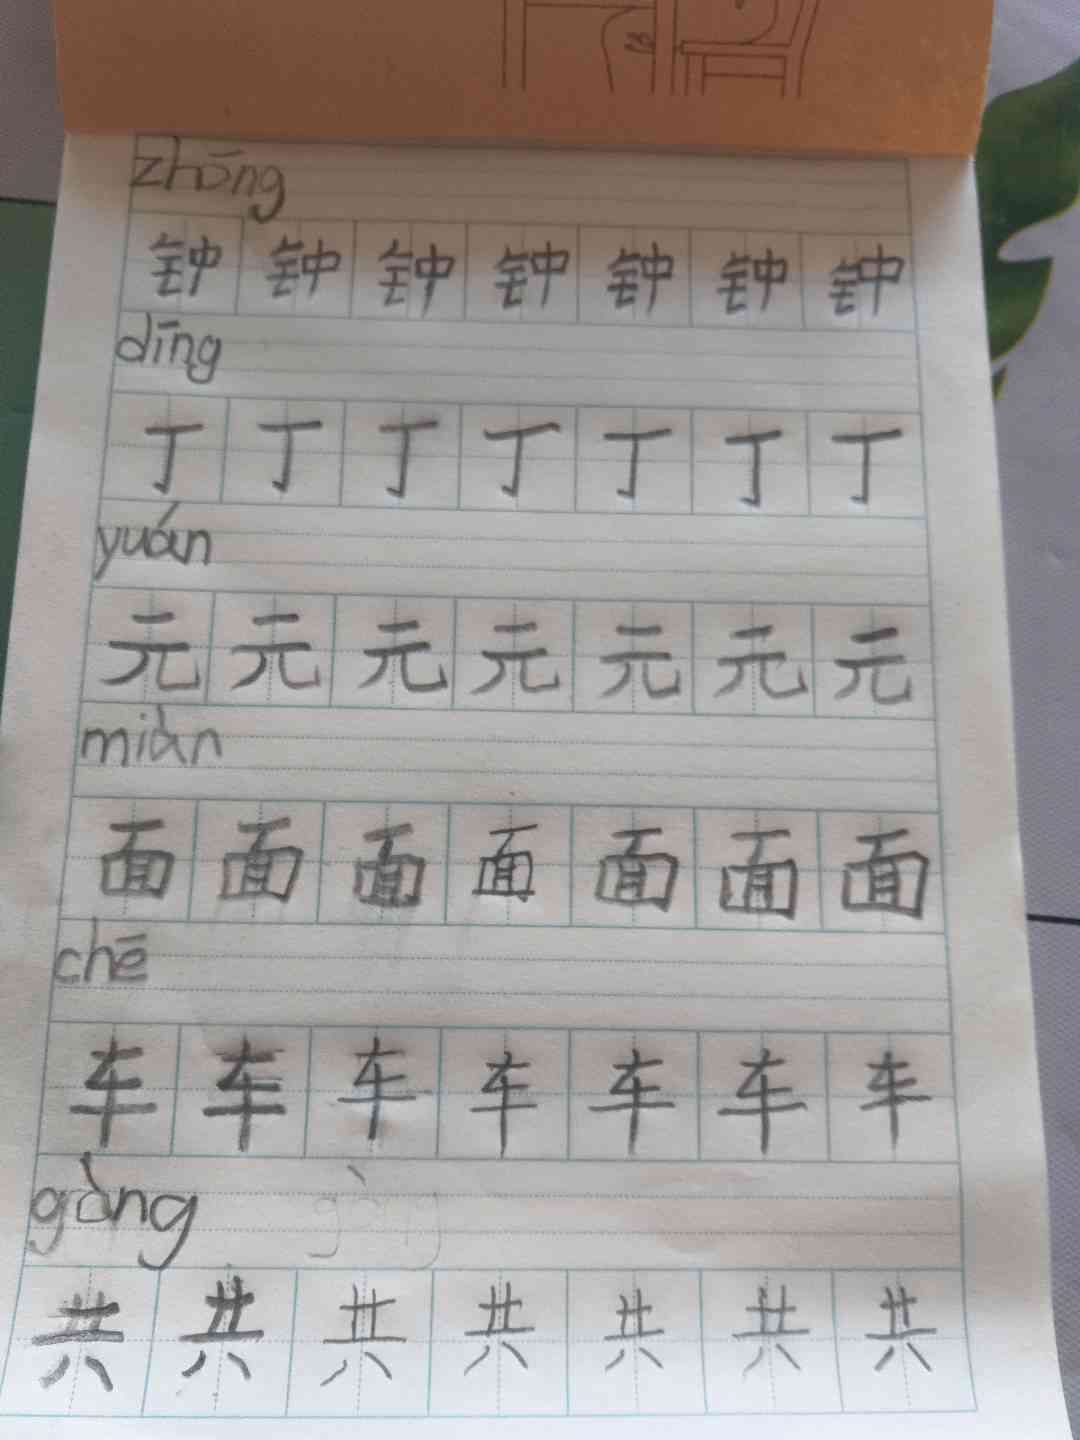 zhōng
钟 钟 钟 钟 钟 钟 钟
dīng
丁 丁 丁 丁 丁 丁 丁
yuán
元 元 元 元 元 元 元
miàn
面 面 面 面 面 面 面
chē
车 车 车 车 车 车 车
gòng gòng
共 共 共 共 共 共 共